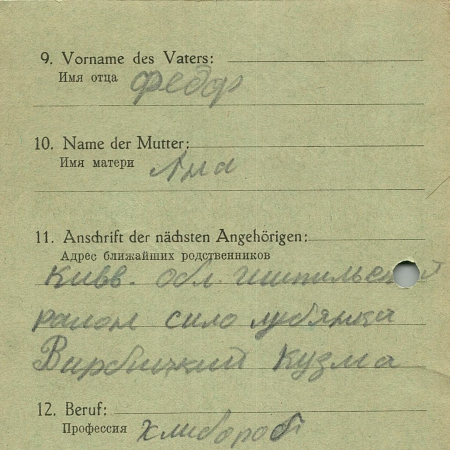 9. Vorname des Vaters:
Имя отца Федор
10. Name der Mutter:
Имя матери Ана
11. Anschrift der nächsten Angehörigen:
Адрес ближайших родственников
Киев. обл.
район село лубянка
Вирбицкий Кузма
12. Beruf:
Профессия хлибороб